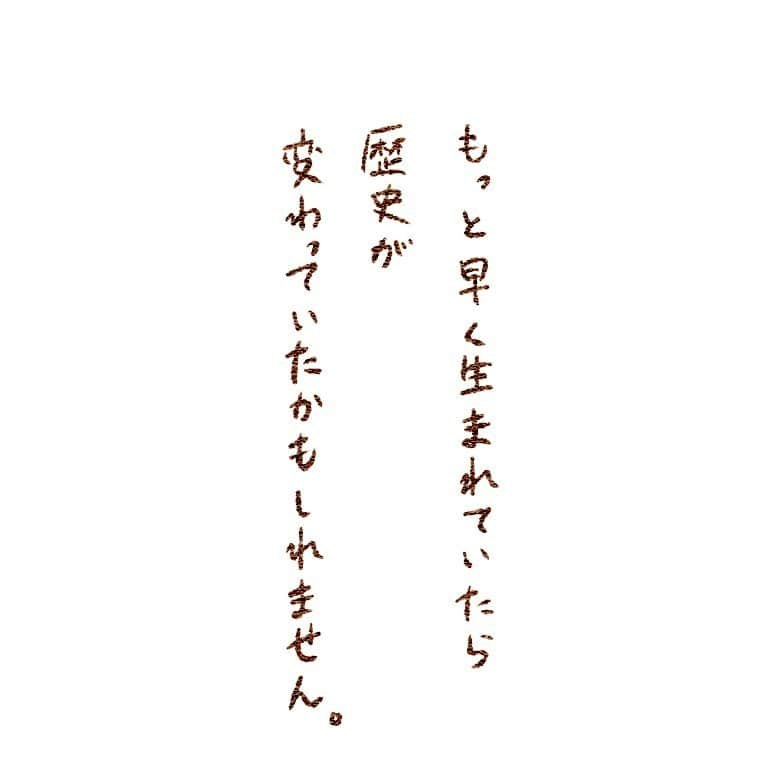 もっと早く生まれていたら
歴史が
変わっていたかもしれません。